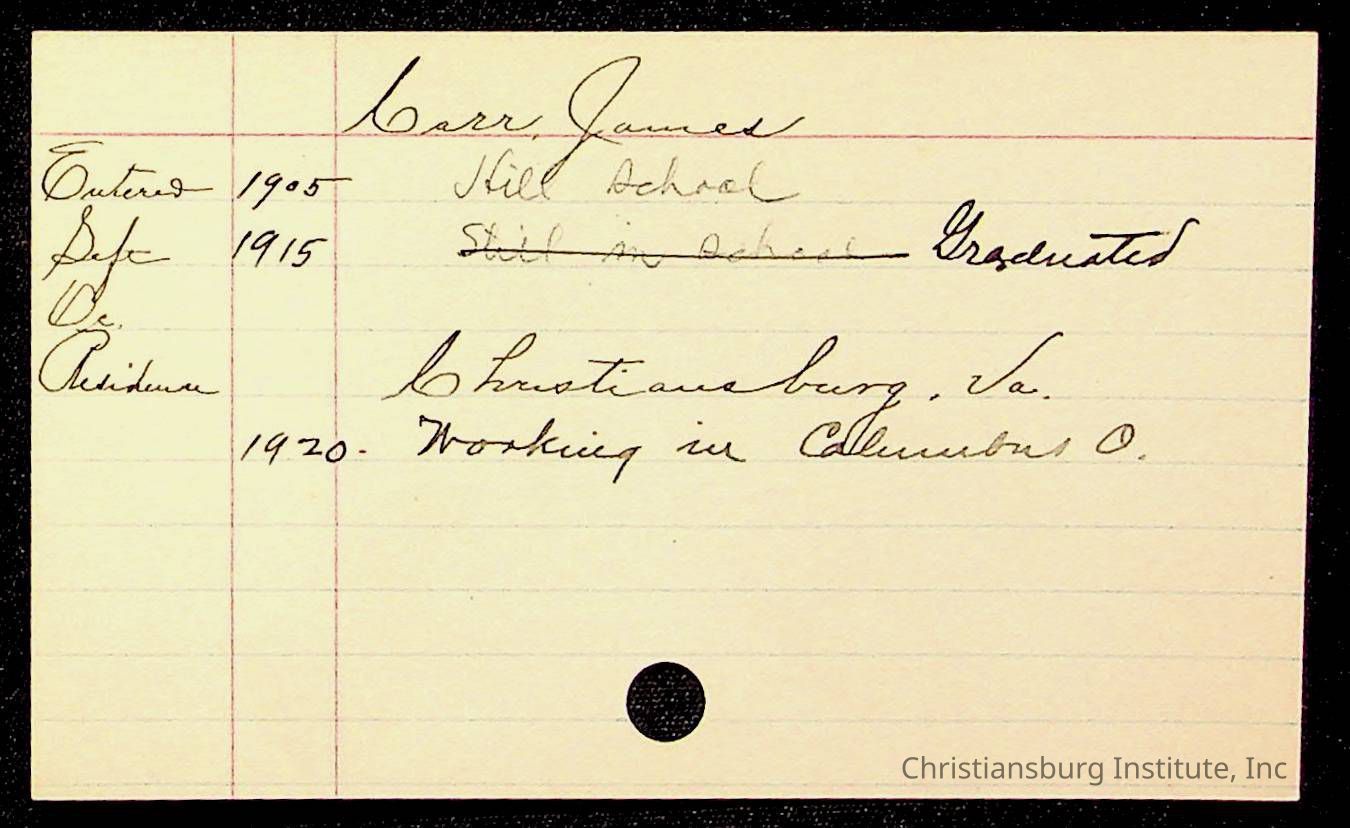 Carr, James
Entered 1905 Hill School
Left 1915 Still in School Graduated
Oc.
Residence Christiansburg, Va.
1920. Working in Columbus O.
Christiansburg Institute, Inc